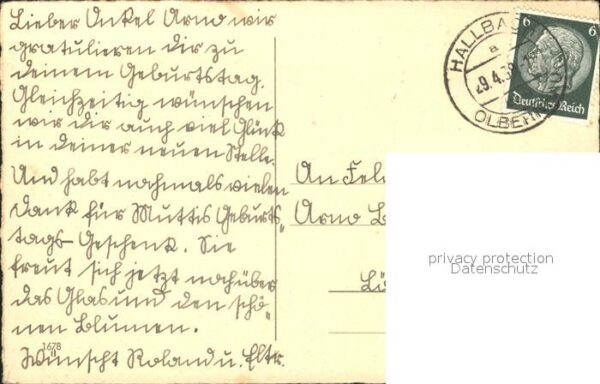 Lieber Onkel Arno wir
gratulieren Dir zu
deinem Geburtstag.
Gleichzeitig wünschen
wir dir auch viel Glück
in deiner neuen Stelle.
Und habt nochmals vielen
Dank für Muttis Geburts„
tags-Geschenk. Sie
freut sich jetzt noch über
das Glas und den schö„
nen Blumen.
1678
Wünscht Roland u. Eltr.
HALLBACH
a
29.4.39
OLBERN
6 6
Deutsches Reich
An
Arno
privacy protection
Datenschutz